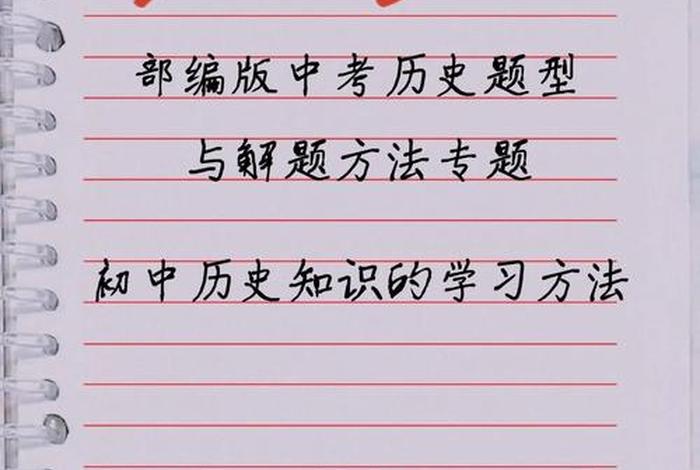 部编版中考历史题型
与解题方法专题
初中历史知识的学习方法